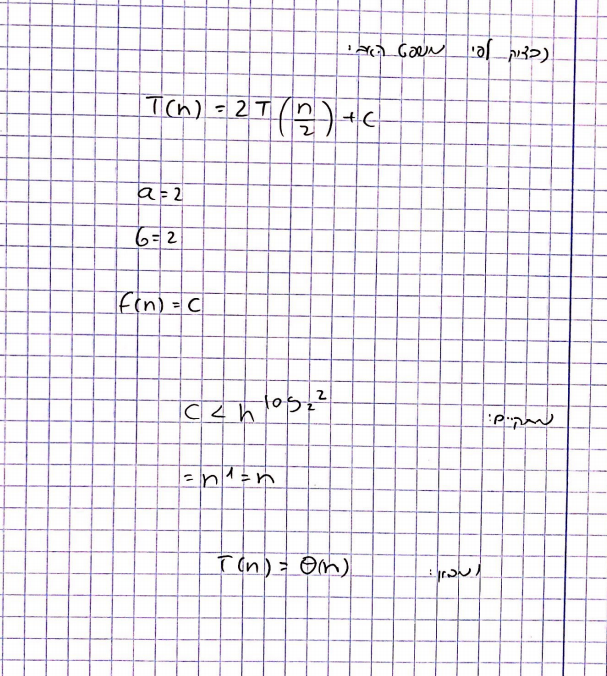 נבדוק לפי משפט האב:
T(n) = 2T(n/2) + c
a = 2
b = 2
f(n) = c
מתקיים: c < n^log₂2
= n¹ = n
ומכאן: T(n) = Θ(n)